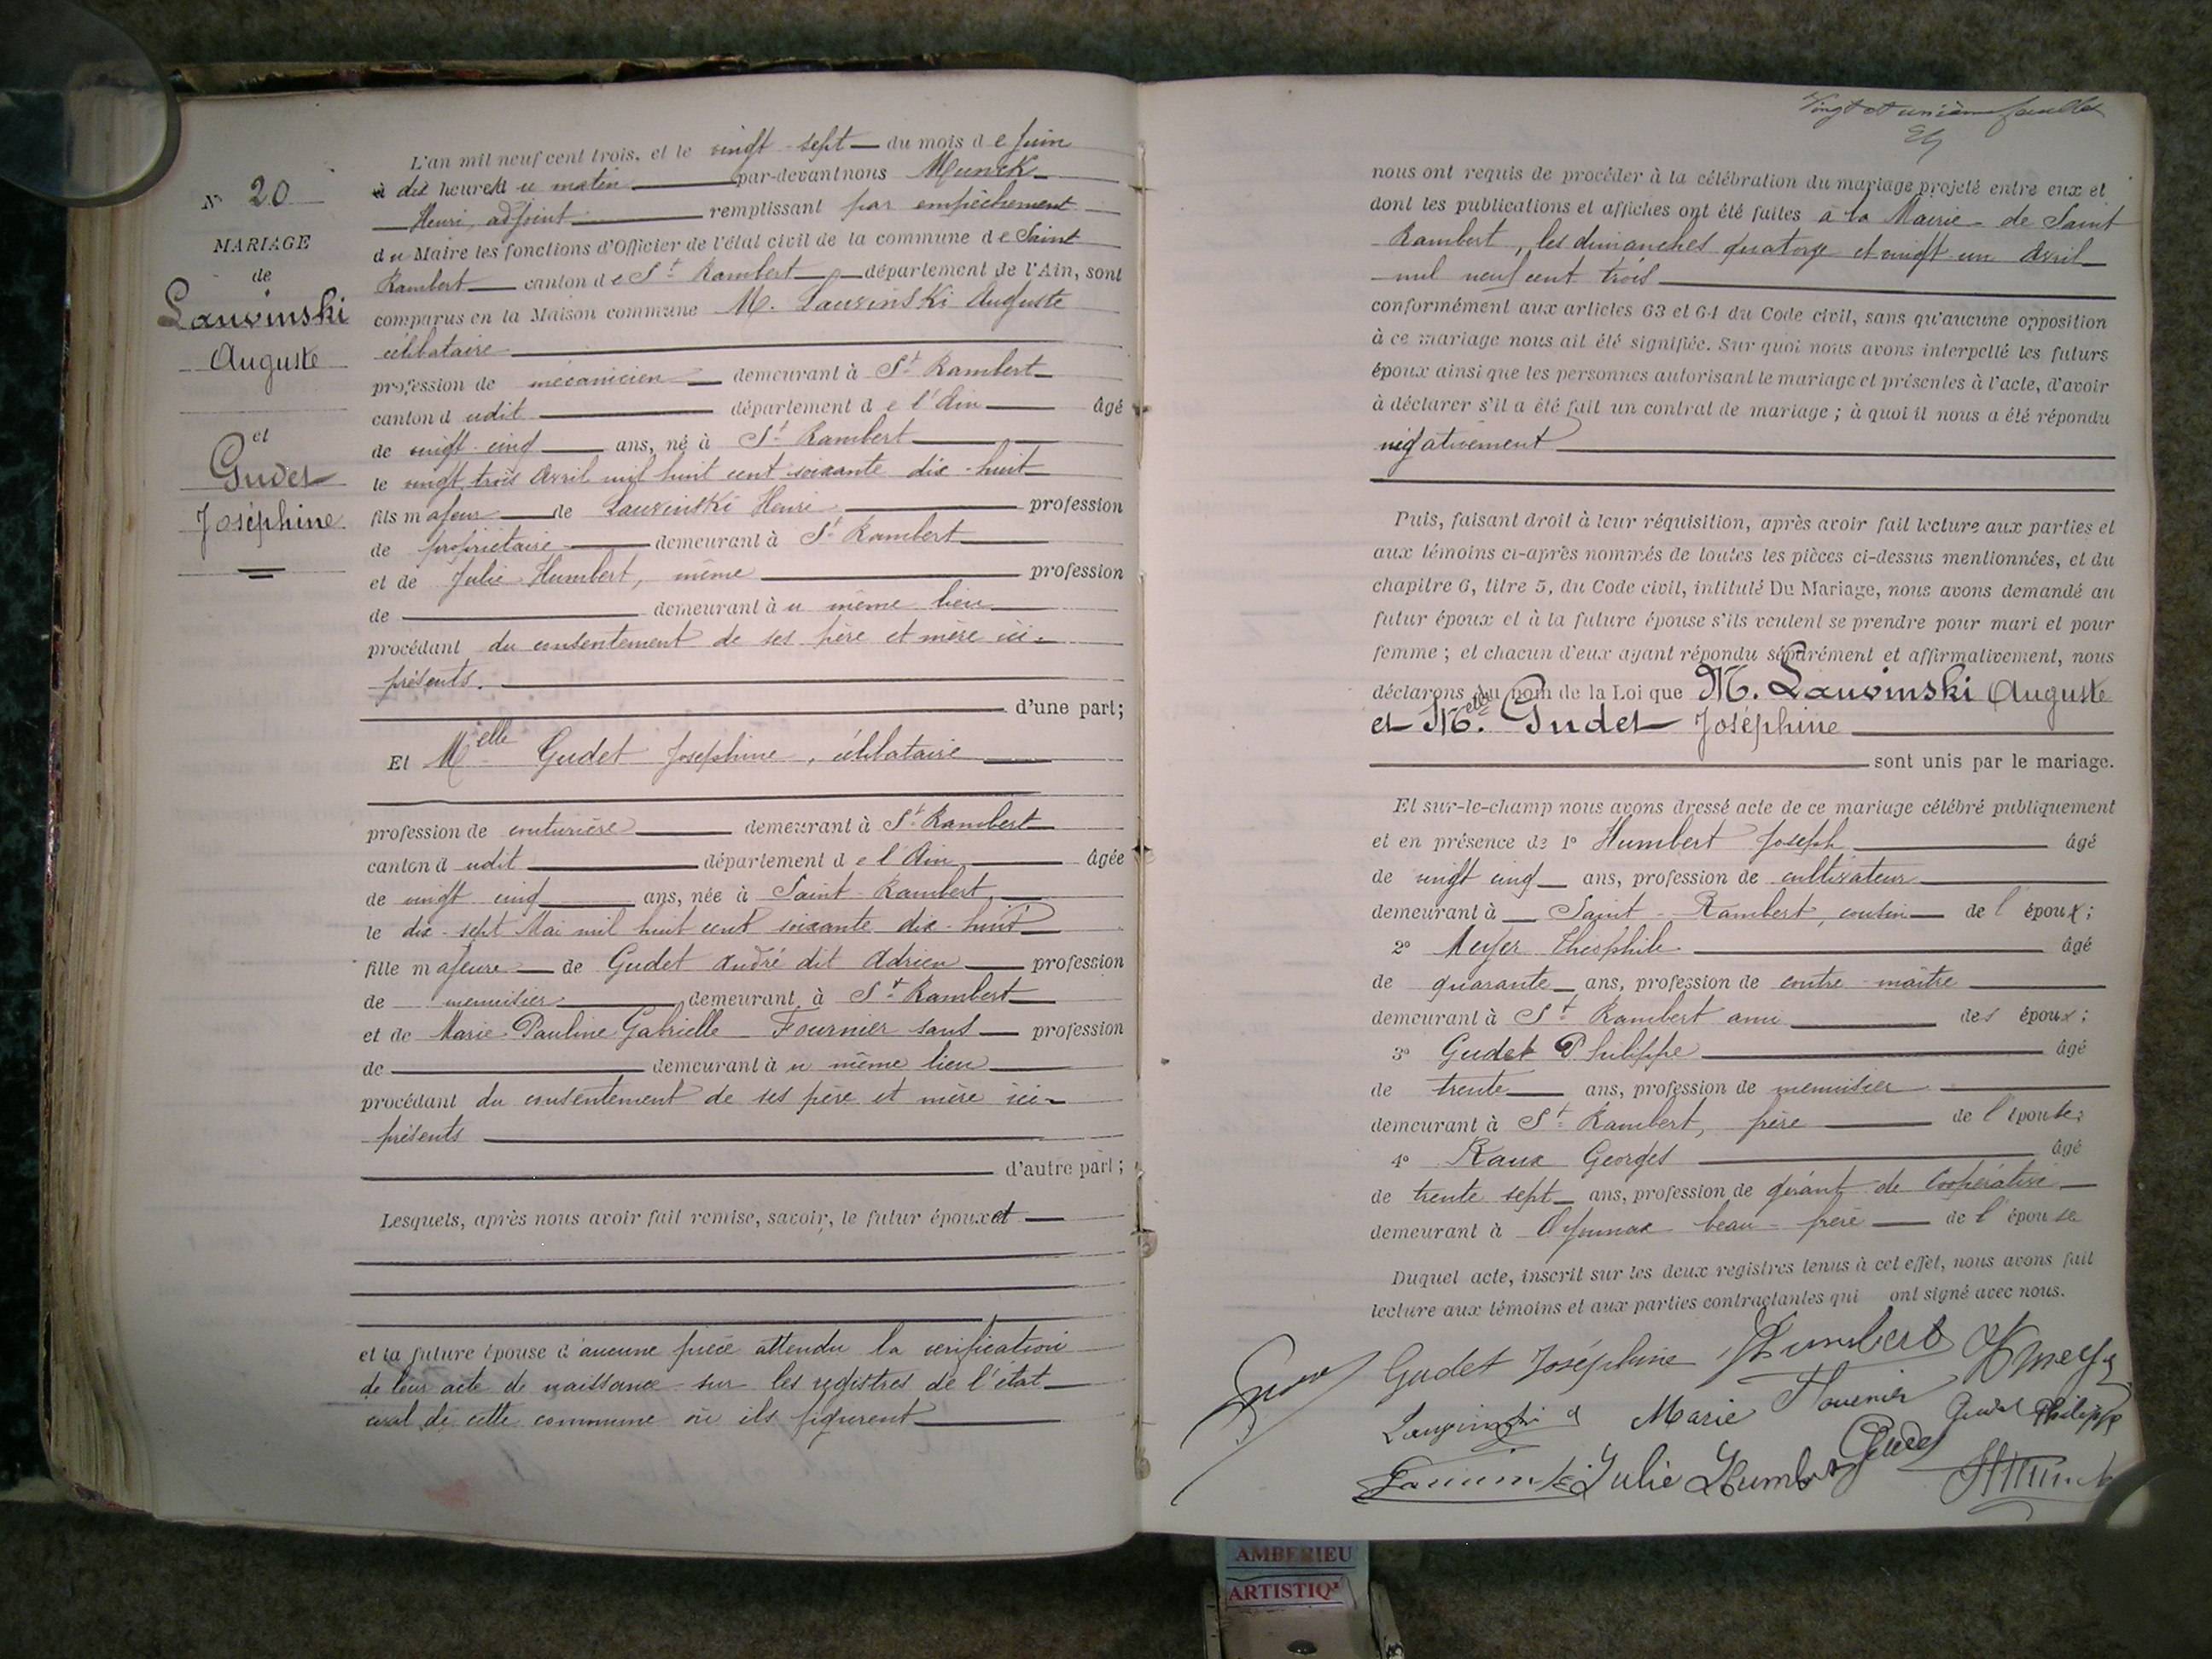 L'an mil neuf cent trois, et le vingt-sept du mois de Juin
à dix heures du matin par-devant nous Munck
Henri, adjoint remplissant par empêchement
du Maire les fonctions d'Officier de l'état civil de la commune de Saint
Rambert canton de St Rambert département de l'Ain, sont
comparus en la Maison commune M. Lauvinski Auguste
célibataire
profession de mécanicien demeurant à St Rambert
canton dudit département de l'Ain âgé
de vingt-cinq ans, né à St Rambert
le vingt trois Avril mil huit cent soixante dix-huit
fils majeur de Lauvinski Henri profession
de propriétaire demeurant à St Rambert
et de Julie Humbert, même profession
de demeurant à u même lieu
procédant du consentement de ses père et mère ici-
présents.
d'une part;
Et Melle Gudet Joséphine, célibataire
profession de couturière demeurant à St Rambert
canton dudit département de l'Ain âgée
de vingt cinq ans, née à Saint-Rambert
le dix-sept Mai mil huit cent soixante dix-huit
fille majeure de Gudet André dit Adrien profession
de menuisier demeurant à St Rambert
et de Marie Pauline Gabrielle Fournier sans profession
de demeurant à u même lieu
procédant du consentement de ses père et mère ici-
présents
d'autre part;
Lesquels, après nous avoir fait remise, savoir, le futur époux et
et la future épouse d'aucune pièce attendu la vérification
de leur acte de naissance sur les registres de l'état
civil de cette commune où ils figurent
No 20
MARIAGE
de
Lauvinski
Auguste
et
Gudet
Joséphine
Vingt et unième feuillet
nous ont requis de procéder à la célébration du mariage projeté entre eux et
dont les publications et affiches ont été faites à la Mairie de Saint
Rambert, les dimanches quatorze et vingt un Avril
mil neuf cent trois
conformément aux articles 63 et 64 du Code civil, sans qu'aucune opposition
à ce mariage nous ait été signifiée. Sur quoi nous avons interpellé les futurs
époux ainsi que les personnes autorisant le mariage et présentes à l'acte, d'avoir
à déclarer s'il a été fait un contrat de mariage ; à quoi il nous a été répondu
négativement
Puis, faisant droit à leur réquisition, après avoir fait lecture aux parties et
aux témoins ci-après nommés de toutes les pièces ci-dessus mentionnées, et du
chapitre 6, titre 5, du Code civil, intitulé Du Mariage, nous avons demandé au
futur époux et à la future épouse s'ils veulent se prendre pour mari et pour
femme ; et chacun d'eux ayant répondu séparément et affirmativement, nous
déclarons au nom de la Loi que M. Lauvinski Auguste
et Melle Gudet Joséphine
sont unis par le mariage.
Et sur-le-champ nous avons dressé acte de ce mariage célébré publiquement
et en présence de 1o Humbert Joseph âgé
de vingt cinq ans, profession de cultivateur
demeurant à Saint-Rambert, cousin de l'époux;
2o Meyer Théophile âgé
de quarante ans, profession de contre-maître
demeurant à St Rambert ami des époux;
3o Gudet Philippe âgé
de trente ans, profession de menuisier
demeurant à St Rambert, frère de l'épouse;
4o Raux Georges âgé
de trente sept ans, profession de gérant de Coopérative
demeurant à Oyonnax beau-frère de l'épouse
Duquel acte, inscrit sur les deux registres tenus à cet effet, nous avons fait
lecture aux témoins et aux parties contractantes qui ont signé avec nous.
Gudet Joséphine Humbert Meyer
Lauvinski A Marie Fournier Gudet Philippe
Julie Humbert Gudet
AMBERIEU
ARTISTIQ